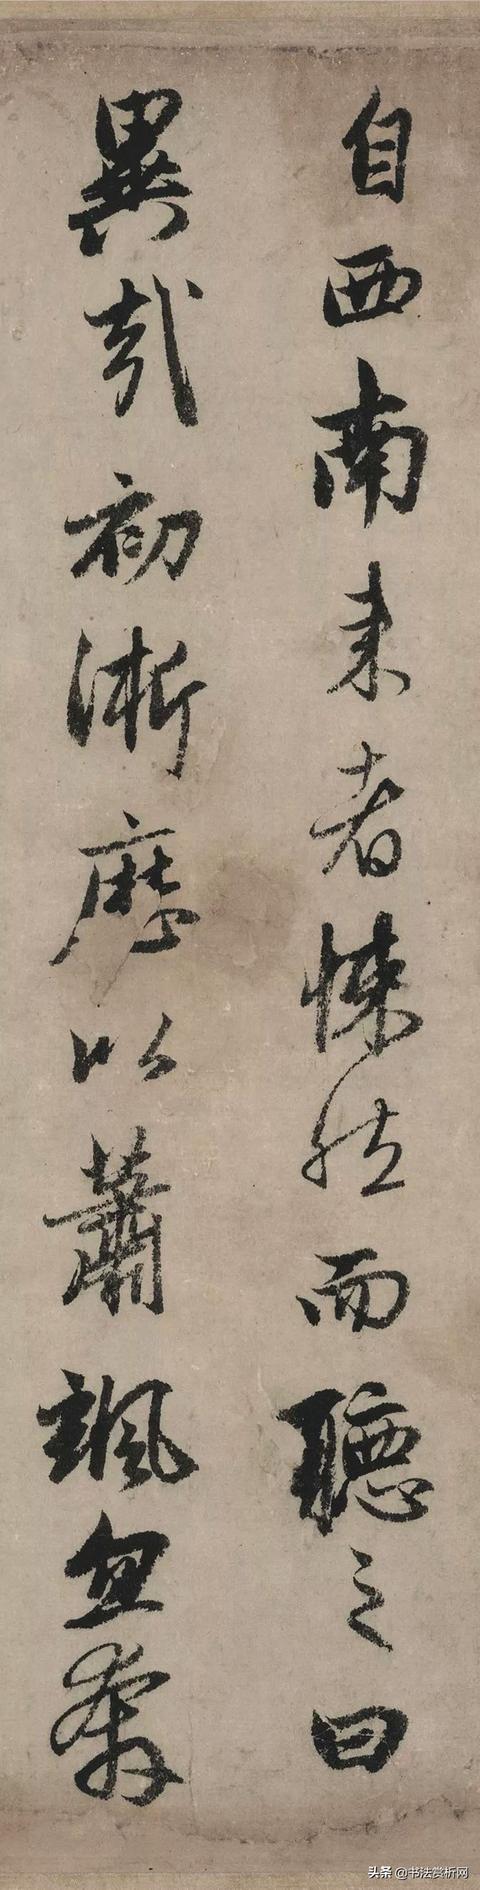 自西南来者悚然而聽之曰
異哉初淅歷以蕭颯忽奔
头条 @书法赏析网